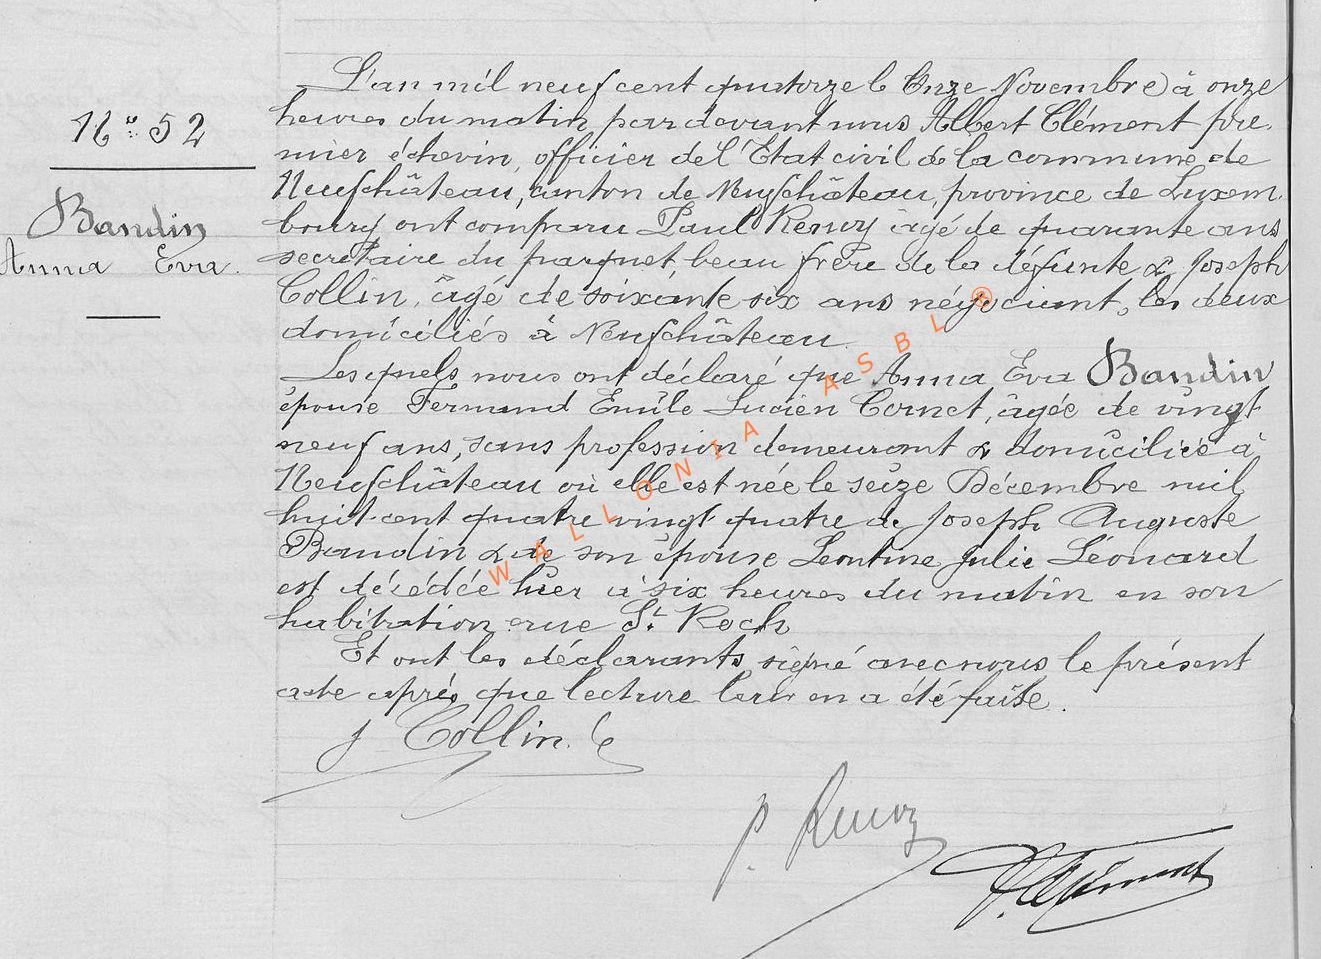 N° 52
Baudin
Anna Eva.
L'an mil neuf cent quatorze le Onze Novembre à onze
heures du matin par devant nous Albert Clément pre-
mier échevin, officier de l'Etat civil de la commune de
Neufchâteau, canton de Neufchâteau, province de Luxem-
bourg ont comparu Paul Renoy âgé de quarante ans
secrétaire du parquet, beau frère de la défunte & Joseph
Collin, âgé de soixante six ans négociant, les deux
domiciliés à Neufchâteau.
Lesquels nous ont déclaré que Anna Eva Baudin
épouse Fernand Emile Lucien Cornet, âgée de vingt
neuf ans, sans profession demeurant & domiciliée à
Neufchâteau où elle est née le seize Décembre mil
huit-cent quatre vingt-quatre de Joseph Auguste
Baudin & de son épouse Léontine Julie Léonard
est décédée hier à six heures du matin en son
habitation rue St Roch
Et ont les déclarants signé avec nous le présent
acte après que lecture leur en a été faite.
J Collin
P. Renoy
A. Clément
WALLONIA ASBL ®